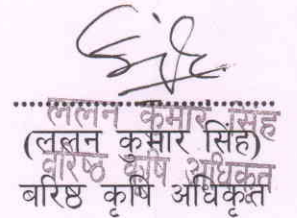 ललन कुमार सिंह
(ललन कुमार सिंह)
वरिष्ठ कृषि अधिकृत
बरिष्ठ कृषि अधिकृत